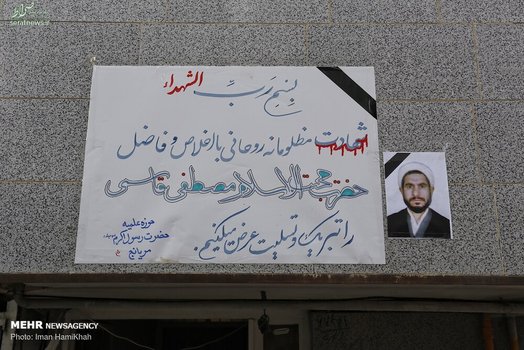 صراط
seratnews.ir
بِسْمِ رَبِّ الشهداء
شهادت مظلومانه روحانی با اخلاص و فاضل
حضرت حجت الاسلام مصطفی قاسمی
را تبریک و تسلیت عرض میکنیم.
حوزه علمیه
حضرت رسول اکرم
مریانج
MEHR NEWSAGENCY
Photo: Iman HamiKhah